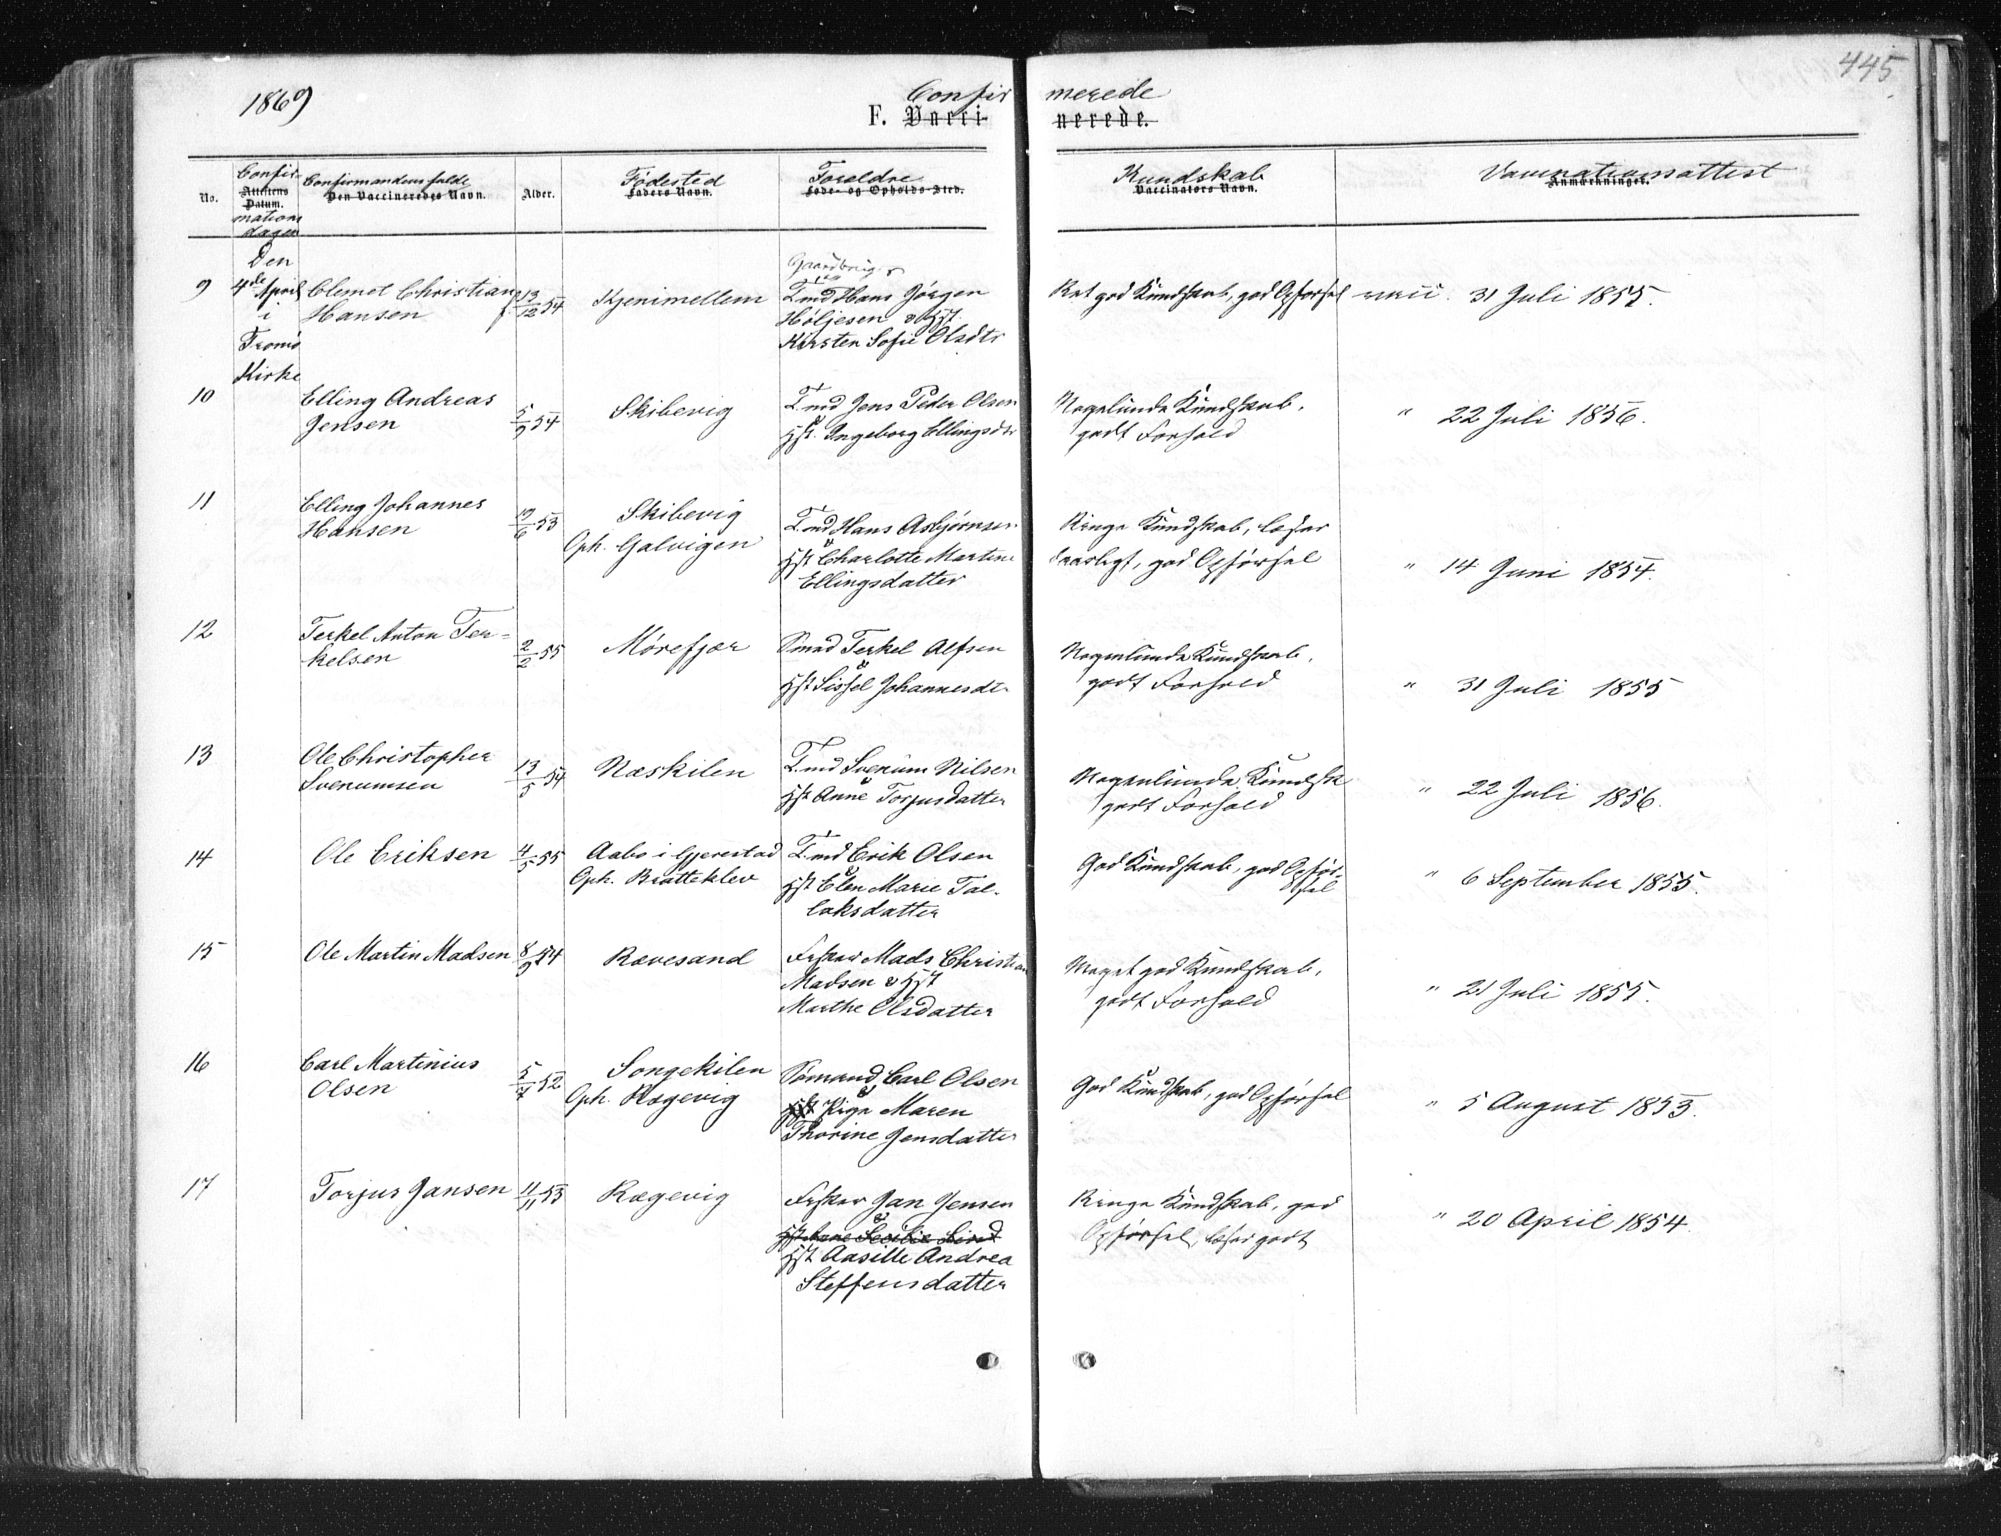 445
1869
Confir merede
F. Vacci- nerede.
No.
Confir-
Attestens
Datum.
mations
dagen
Confirmandens fulde
Den Vaccineredes Navn.
Alder.
Fødested
Faders Navn.
Forældre
Føde- og Opholds-Sted.
Kundskab
Vaccinators Navn.
Vaccinationsattest
Anmærkninger.
Den
4de April
i
Tromø
Kirke
9 Clemet Christian
Hansen
f. 13/12 54
Kjenimellem
Gaardbruger
Hans Jörgen
Höljesen & Hst
Kirsten Sofie Olsdtr
Ret god Kundskab, god Opførsel
31 Juli 1855.
10 Elling Andreas
Jensen
5/9 54
Skibevig
T.md Jens Peder Olsen
& Hst. Ingeborg Ellingsdtr
Nogenlunde Kundskab,
godt Forhold
" 22 Juli 1856.
11 Elling Johannes
Hansen
19/6 53
Skibevig
Oph. Galvigen
T.md Hans Asbjørnsen
& Hst Charlotte Martine
Ellingsdatter
Ringe Kundskab, læser
daarligt, god Opførsel
" 14 Juni 1854.
12 Terkel Anton Ter-
kelsen
2/2 55
Mörefjær
Sømd Terkel Alfsen
& Hst Sissel Johannesdtr
Nogenlunde Kundskab,
godt Forhold
" 31 Juli 1855
13 Ole Christopher
Svenumsen
13/5 54
Næskilen
T.md Svenum Nilsen
& Hst Anne Torjusdatter
Nogenlunde Kundsk
godt Forhold
" 22 Juli 1856.
14 Ole Eriksen
4/5 55
Aabo i Gjerestad
Oph. Bratteklev
T.md Erik Olsen
& Hst Elen Marie Tal-
laksdatter
God Kundskab, god Opfør-
sel
" 6 September 1855.
15 Ole Martin Madsen
8/9 54
Rævesand
Fisker Mads Christian
Madsen & Hst
Marthe Olsdatter
Meget god Kundskab,
godt Forhold
" 21 Juli 1855.
16 Carl Martinius
Olsen
5/7 52
Songekilen
Oph. Rægevig
Sömand Carl Olsen
& Hst Pige Maren
Thorine Jensdatter
God Kundskab, god Opførsel
" 5 August 1853.
17 Torjus Jansen
11/11 53
Rægevig
Fisker Jan Jensen
& Hst Anne Secilie
Hst Aasille Andrea
Steffensdatter
Ringe Kundskab, god
Opførsel, læser godt
" 20 April 1854.